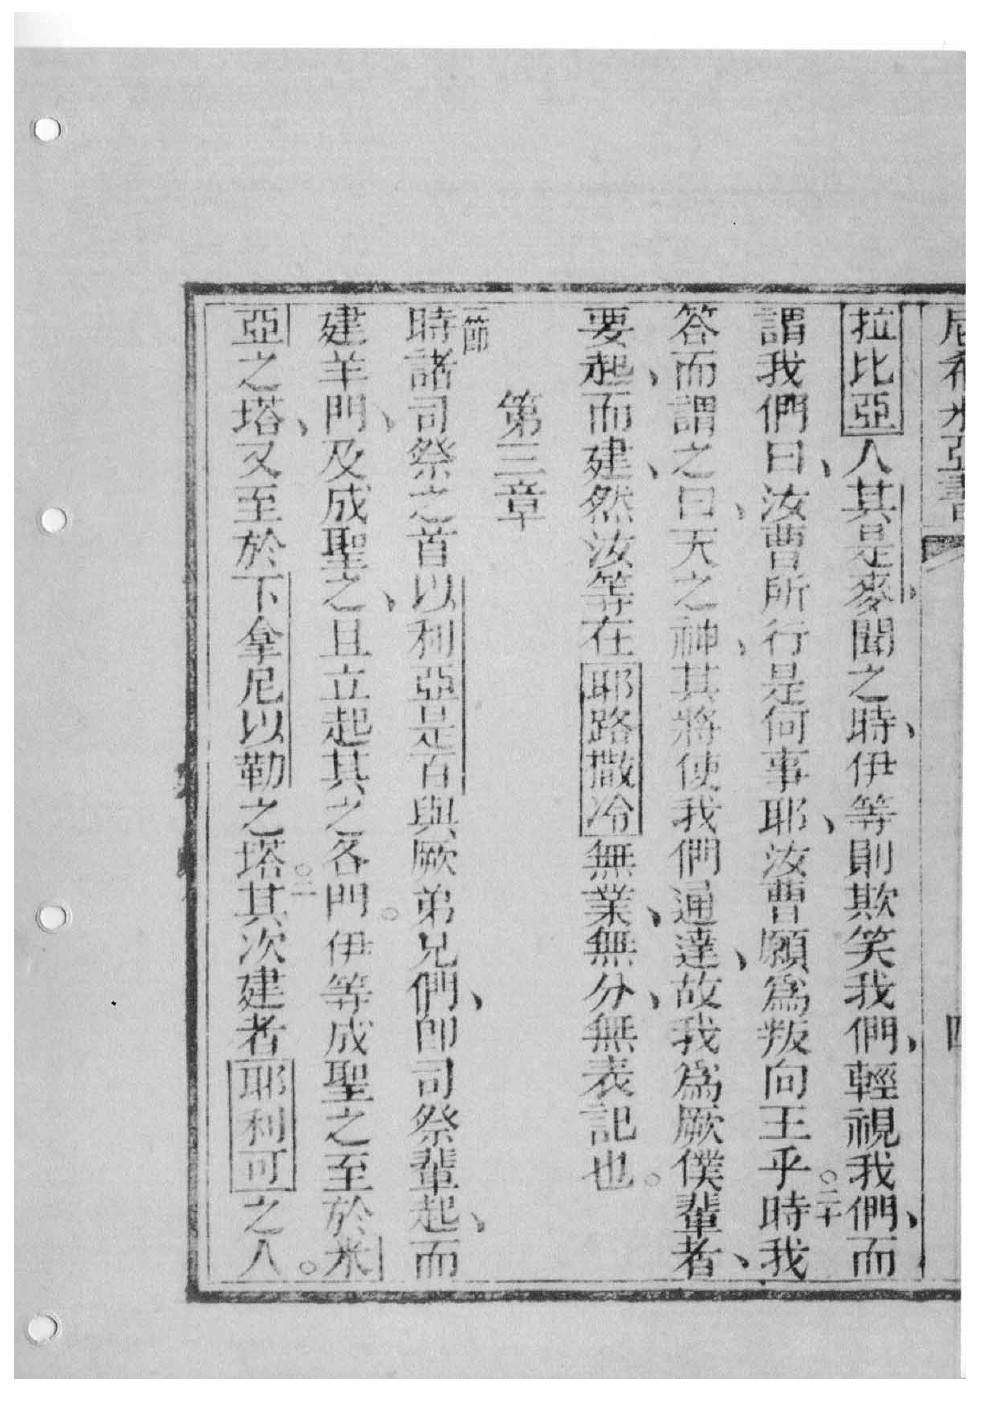 尼希米亞書 四
拉比亞人其是麥聞之時、伊等則欺笑我們、輕視我們、而
謂我們曰、汝曹所行是何事耶、汝曹願爲叛向王乎。二十時我
答而謂之曰、天之神、其將使我們通達、故我爲厥僕輩者、
要起、而建、然汝等在耶路撒冷無業、無分、無表記也。
第三章
一節
時諸司祭之首以利亞是百與厥弟兄們、卽司祭輩起、而
建羊門、及成聖之、且立起其之各門。伊等成聖之至於米
亞之塔、又至於下拿尼以勒之塔。二其次建者耶利可之人。